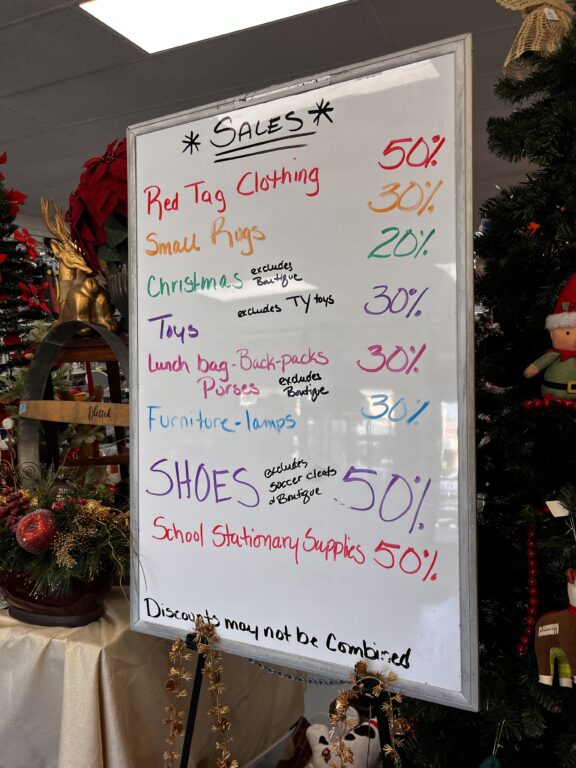 * SALES *
Red Tag Clothing 50%
Small Rugs 30%
Christmas excludes Boutique 20%
Toys excludes TY toys 30%
Lunch bag - Back-packs 30%
Purses excludes Boutique
Furniture - lamps 30%
SHOES excludes soccer cleats & Boutique 50%
School Stationary Supplies 50%
Discounts may not be Combined
Blessed